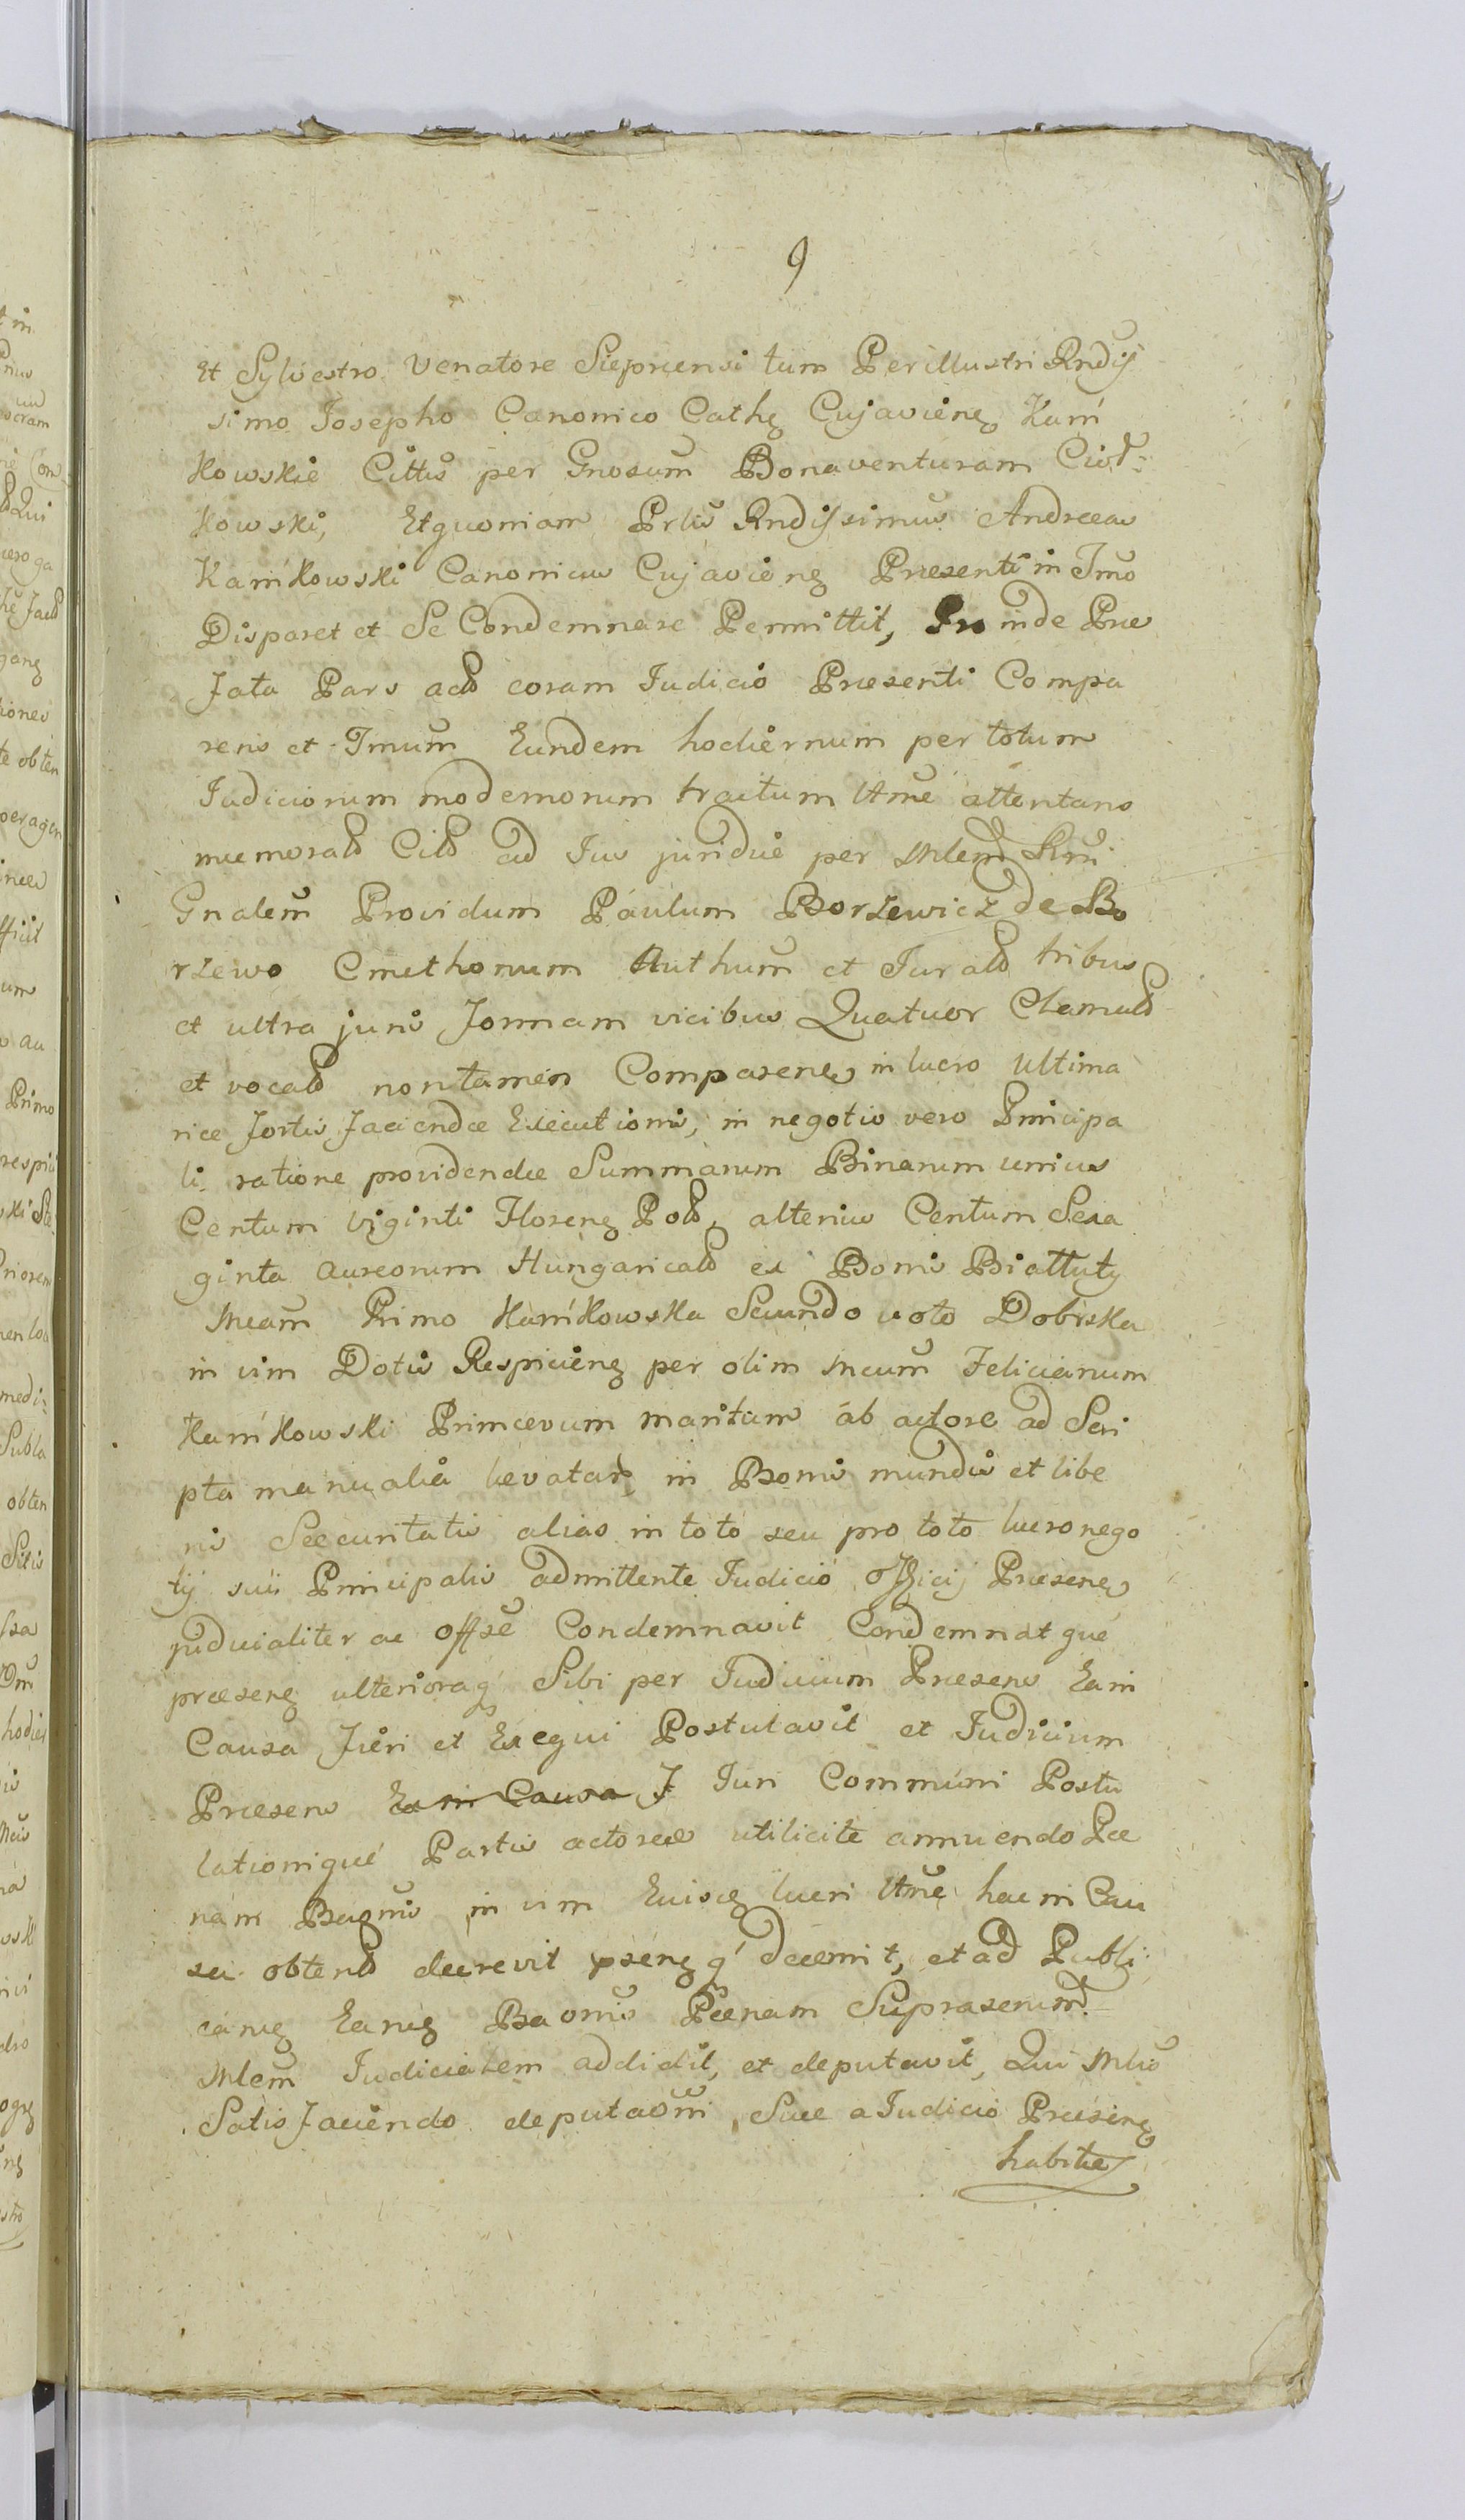 9
Et Sylvestro Venatore Sieprcensi tum Perillustri Rndis
simo Josepho Canonico Cathe Cujaviene Kam
kowskie Cittis per Gnosum Bonaventuram Cioł:
kowski, Et quoniam Prlis Rndissimus Andreas
Kamkowski Canonicus Cujaviene Presenti in Tmo
Disparet et Se Condemnare Permittit, Pro inde Præ
fata Pars actt coram Judicio Præsenti Compa
rens et Tmum Eundem hodiernum per totum
Judiciorum modernorum tractum Ttme attentans
memoratt Citt ad Jus juridice per Mlem Rni
Gnalem Providum Paulum Borzewicz de Bo
rzewo Cmethonum Authum et Juratt tribus
et ultra juris formam vicibus Quatuor Clamatt
et vocatt non tamen Comparene in lucro ultima
riæ fortis faciendæ Executionis, in negotio vero Principa
li ratione providendæ Summarum Binarum unius
Centum Viginti Florene Pol, alterius Centum Sexa
ginta Aureorum Hungaricatt ex Bonis Białłuty
Mcam Primo Kamkowska Secundo voto Dobrska
in vim Dotis Respiciene per olim Mcum Felicianum
Kamkowski Primævum maritum ab actore ad Scri
pta manualia levatar in Bonis mundis et libe
ris Securitatis alias in toto seu pro toto lucro nego
tij sui Principalis admittente Judicio Officij Præsene
judicialiter ac offse Condemnavit Condemnatque
præsene ulterioraq Sibi per Judicium Præsens Ea in
Causa fieri et Exequi Postulavit et Judicium
Præsens Ea in Causa J Juri Communi Postu
lationique Partis actoreæ utilicite annuendo Pæ
nam Bagnis in vim Euisce lucri Ttme hac in Cau
sa obtentt decrevit psene q decernit, et ad Publi
cane Eanie Baonis Pænam Suprascrium
Mlem Judicialem addidit, et deputavit, Qui Mlis
Satisfaciendo deputaoni Suæ a Judicio Præsene
habitæ